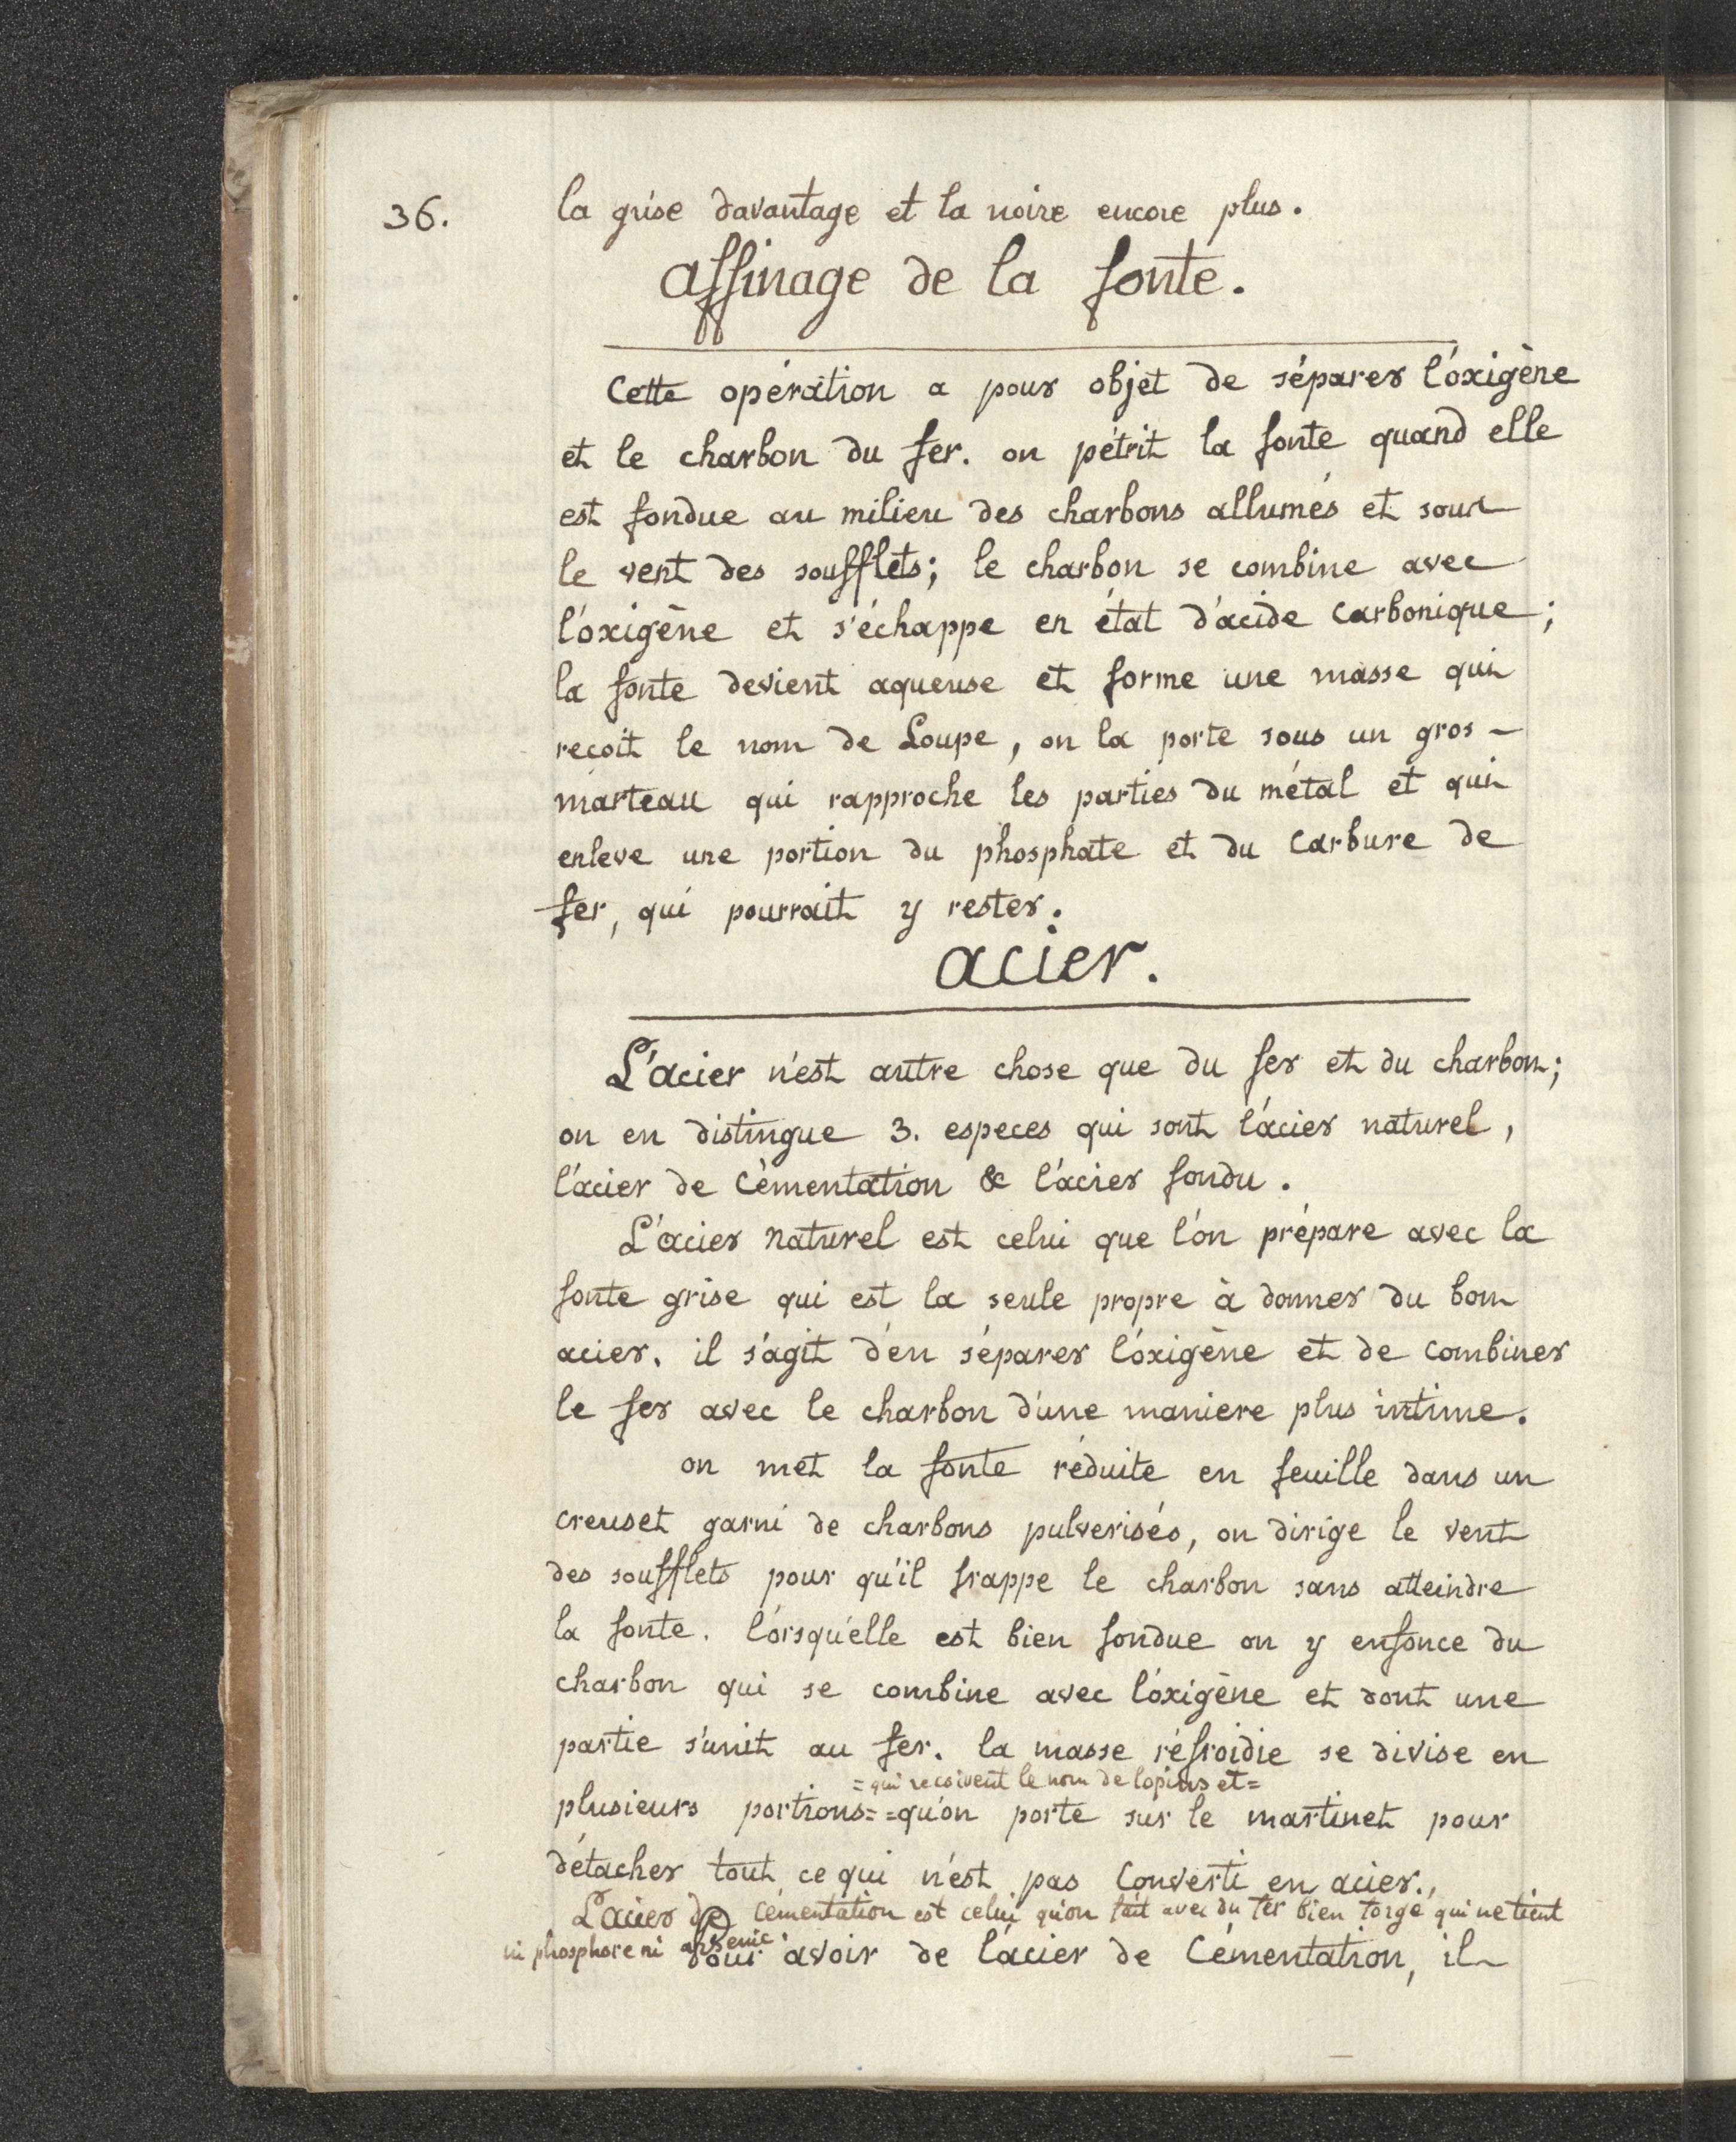 36.
la grise davantage et la noire encore plus.
affinage de la fonte.
Cette opération a pour objet de séparer l'oxigène
et le charbon du fer. on pétrit la fonte quand elle
est fondue au milieu des charbons allumés et sous
le vent des soufflets; le charbon se combine avec
l'oxigène et s'échappe en état d'acide carbonique;
la fonte devient aqueuse et forme une masse qui
reçoit le nom de Loupe, on la porte sous un gros -
marteau qui rapproche les parties du métal et qui
enleve une portion du phosphate et du Carbure de
fer, qui pourrait y rester.
acier.
L'acier n'est autre chose que du fer et du charbon;
on en distingue 3. especes qui sont l'acier naturel,
l'acier de Cémentation & l'acier fondu.
L'acier naturel est celui que l'on prépare avec la
fonte grise qui est la seule propre à donner du bon
acier. il s'agit d'en séparer l'oxigène et de combiner
le fer avec le charbon d'une maniere plus intime.
on met la fonte réduite en feuille dans un
creuset garni de charbons pulverisés, on dirige le vent
des soufflets pour qu'il frappe le charbon sans atteindre
la fonte. lorsqu'elle est bien fondue on y enfonce du
charbon qui se combine avec l'oxigène et dont une
partie s'unit au fer. la masse réfroidie se divise en
=qui recoivent le nom de lopins et=
plusieurs portions= =qu'on porte sur le martinet pour
détacher tout ce qui n'est pas Converti en acier.,
L'acier de Cémentation est celui qu'on fait avec du fer bien forgé qui ne tient
ni phosphore ni arsenic.
Pour avoir de l'acier de Cémentation, il